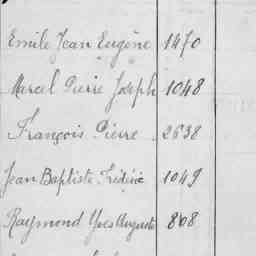 Emile Jean Eugène 1470
Marcel Pierre Joseph 1048
François Pierre 2638
Jean Baptiste Frédéric 1049
Raymond Yves Auguste 868